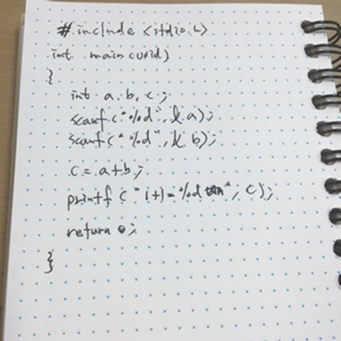 #include <stdio.h>
int main(void)
{
int a,b,c;
scanf("%d", &a);
scanf("%d", &b);
c=a+b;
printf("1+1=%d", c);
return 0;
}